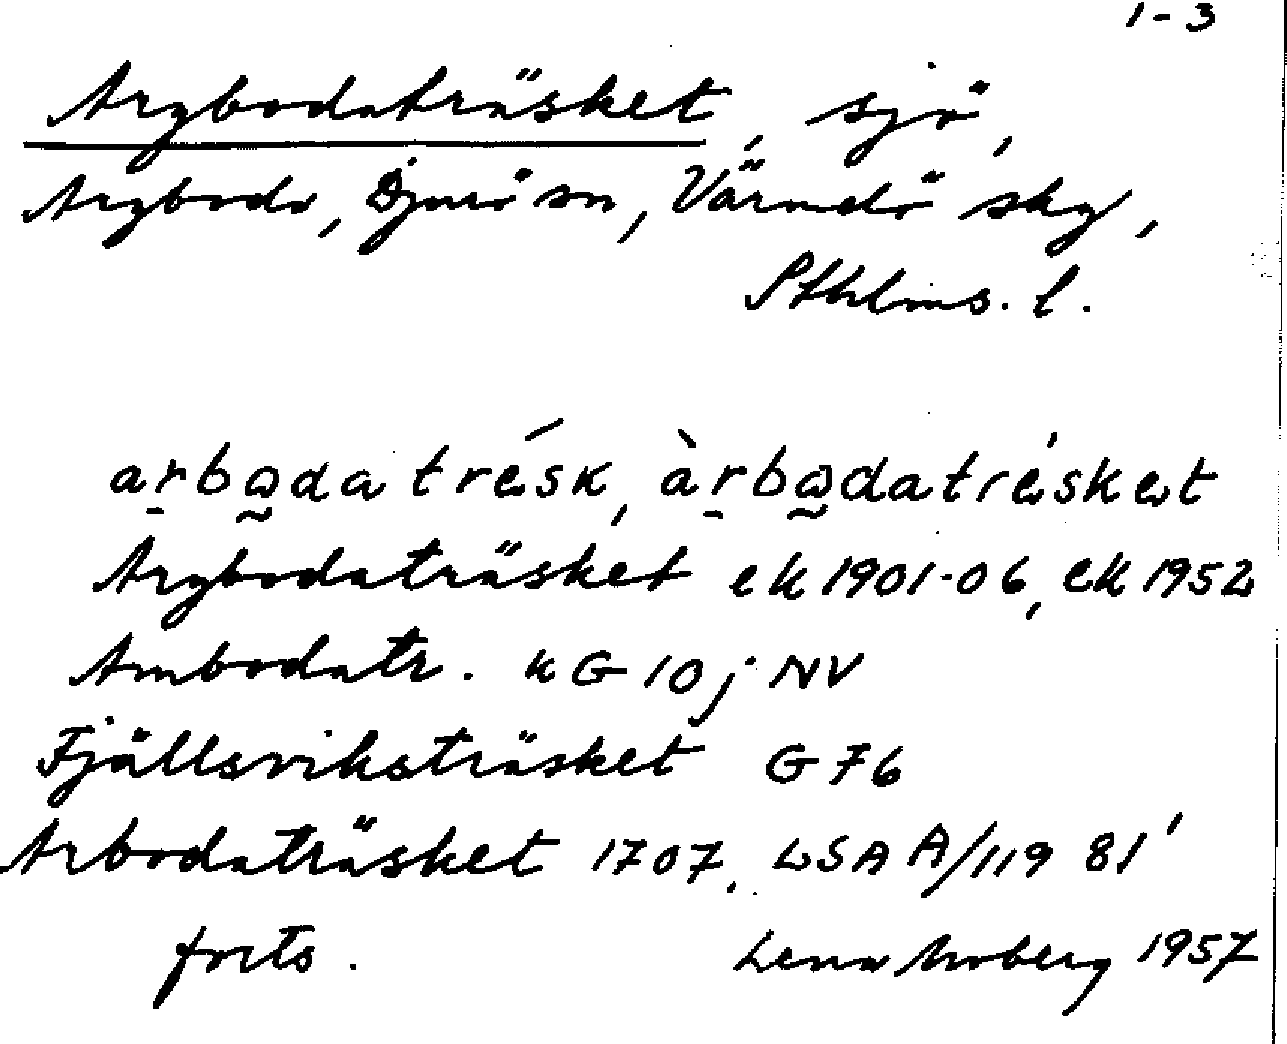 1-3
Argbodaträsket, sjö,
Argboda, Djurö sn, Värmdö skg,
Sthlms. l.
arbodatrésk, àrbodatrésket
Argbodaträsket ek 1901-06, ek 1952
Ambodatr. k G 10 j NV
Fjällsviksträsket G 76
Arbodaträsket 1707, LSA A/119 81'
forts. Lena Moberg 1957